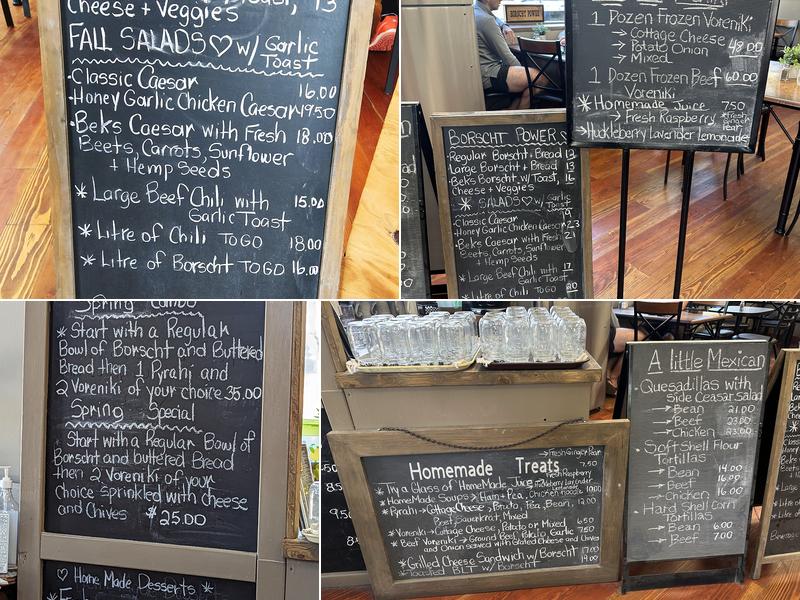 Cheese + Veggies
FALL SALADS♡ w/ Garlic Toast
•Classic Caesar 16.00
•Honey Garlic Chicken Caesar 19.50
•Bek's Caesar with Fresh 18.00
Beets, Carrots, Sunflower
+ Hemp Seeds
* Large Beef Chili with 15.00
Garlic Toast
* Litre of Chili TOGO 18.00
* Litre of Borscht TOGO 16.00
BORSCHT POWER
1 Dozen Frozen Voreniki
→ Cottage Cheese
→ Potato Onion 48.00
→ Mixed
1 Dozen Frozen Beef 60.00
Voreniki
* Homemade Juice 7.50
→ Fresh Raspberry
→ Huckleberry Lavender Lemonade
BORSCHT POWER ♡
•Regular Borscht, Bread 12
Large Borscht + Bread 13
•Bek's Borscht w/ Toast, 16
Cheese + Veggies
* SALADS♡ w/ Garlic Toast
Classic Caesar 19
•Honey Garlic Chicken Caesar 23
•Bek's Caesar with Fresh 21
Beets, Carrots, Sunflower
+ Hemp Seeds
* Large Beef Chili with 17
Garlic Toast
* Litre of Chili TOGO 20
Spring Combo
* Start with a Regular
Bowl of Borscht and Buttered
Bread then 1 Pyrahi and
2 Voreniki of your choice 35.00
Spring Special
Start with a Regular Bowl of
Borscht and buttered Bread
then 2 Voreniki of your
choice sprinkled with cheese
and Chives $25.00
♡ Home Made Desserts *
Homemade Treats
→Fresh Ginger Pear
* Try a Glass of HomeMade Juice 7.50
→Fresh Raspberry
* HomeMade Soups → Ham + Pea, Chicken noodle 10.00
* Pyrahi → Cottage Cheese, Potato, Pea, Bean, 12.00
Beef, Sauerkraut, Mixed
* Voreniki → Cottage Cheese, Potato or Mixed 6.50
* Beef Voreniki → Ground Beef, Potato Garlic 7.50
and Onion served with Grated Cheese and Chives
* Grilled Cheese Sandwich w/ Borscht 17.00
* Toasted BLT w/ Borscht 19.00
A little Mexican
•Quesadillas with
Side Ceasar Salad
→ Bean 21.00
→ Beef 23.00
→ Chicken 23.00
•Soft Shell Flour
Tortillas
→ Bean 14.00
→ Beef 16.00
→ Chicken 16.00
•Hard Shell Corn
Tortillas
→ Bean 6.00
→ Beef 7.00